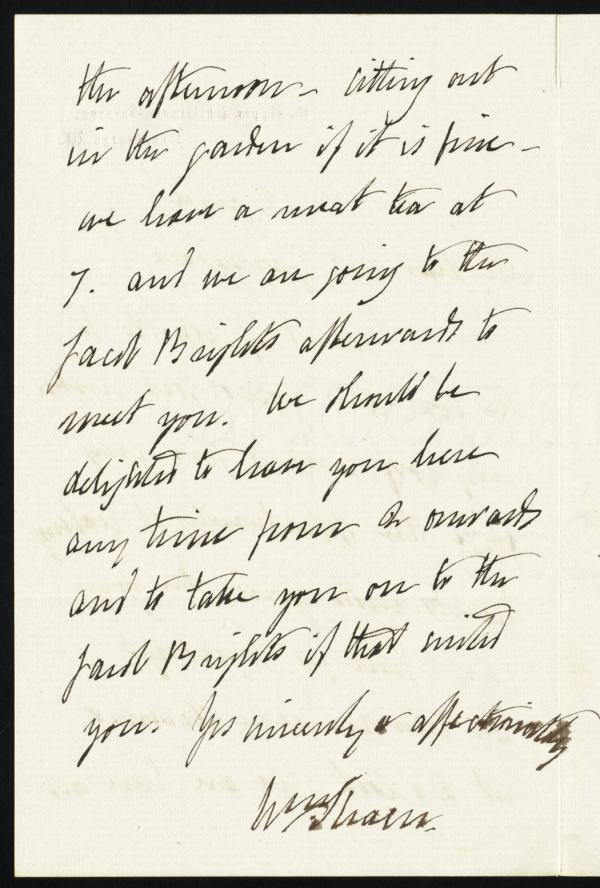 the afternoon – sitting out
in the garden if it is fine –
we have a meat tea at
7. and we are going to the
Jacob Brights afterwards to
meet you. We should be
delighted to have you here
any time from 2 onwards
and to take you on to the
Jacob Brights if that suited
you. Yrs sincerely & affectionately
Wm Shaen.